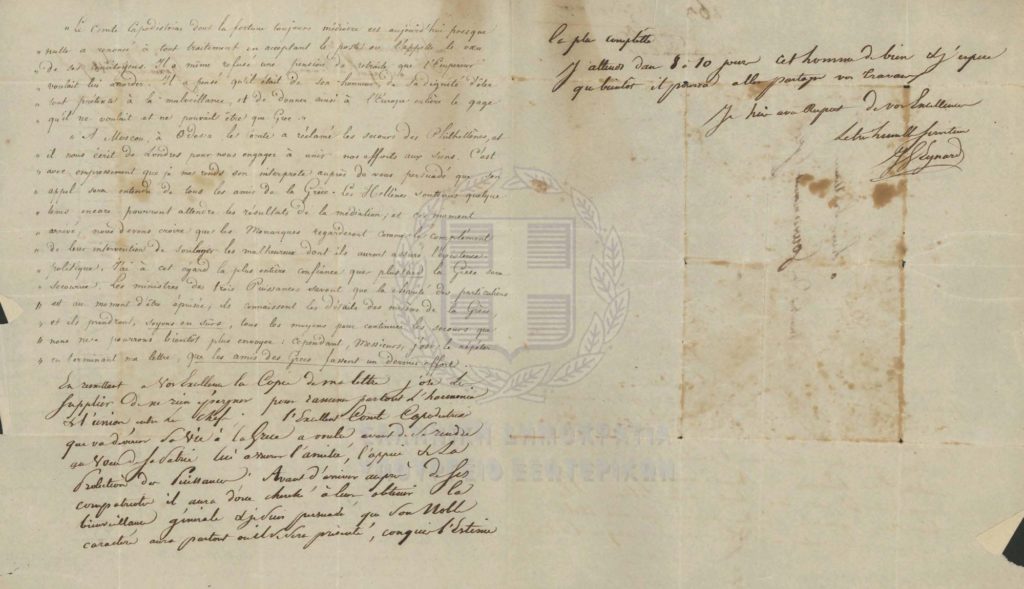 « Le Comte Capodistrias dont la fortune toujours médiocre est aujourd'hui presque
« nulle a renoncé à tout traitement en acceptant le poste où l'appelle le vœu
« de ses concitoyens. Il a même refusé une pension de retraite que l'Empereur
« voulait lui accorder. Il a pensé qu'il était de son honneur, de sa dignité d'ôter
« tout prétexte à la malveillance, et de donner ainsi à l'Europe entière le gage
« qu'il ne voulait et ne pouvait être que Grec. »
« A Moscou, à Odessa le comte a réclamé les secours des Philhellènes, et
« il nous écrit de Londres pour nous engager à unir nos efforts aux siens. C'est
« avec empressement que je me rends son interprète auprès de vous persuadé que son
« appel sera entendu de tous les amis de la Grèce. Les Hellènes soutenus quelque
« tems encore pourront attendre les résultats de la médiation; et ce moment
« arrivé, nous devons croire que les Monarques regarderont comme le complément
« de leur intervention de soulager les malheureux dont ils auront assuré l'existence
« politique. J'ai à cet égard la plus entière confiance que plus tard la Grèce sera
« secourue. Les ministres des trois Puissances savent que la charité des particuliers
« est au moment d'être épuisée; ils connaissent les détails des misères de la Grèce,
« et ils prendront, soyons en sûrs, tous les moyens pour continuer les secours que
« nous ne pourrons bientôt plus envoyer; cependant, Messieurs, j'ose le répéter
« en terminant ma lettre, que les amis des Grecs fassent un dernier effort.
En remettant a Vos Excellence la Copie de ma lettre j'ose le
supplier de ne rien épargner pour ramener partout l'harmonie
et l'union entre les chef. l'Excellent Comte Capodistrias
que va dévouer sa Vie à la Grece a voulu avant de se rendre
au Vœu de sa Patrie lui assurer l'amitié, l'appui et La
Protection des Puissances. Avant d'arriver auprès de Ses
compatriotes il aura donc cherché à leur obtenir la
bienveillance générale et je suis persuadé que son Noble
caractère aura partout où il se sera présenté, conquis l'Estime
la plus complette
J'attends dans 8. 10 jours cet homme de bien et j'espère
que bientôt il pourra aller partager vos Travaux
Je suis avec Respect de vos Excellences
Le très humble serviteur
Eynard
ΕΛΛΗΝΙΚΗ ΔΗΜΟΚΡΑΤΙΑ
ΥΠΟΥΡΓΕΙΟ ΕΞΩΤΕΡΙΚΩΝ